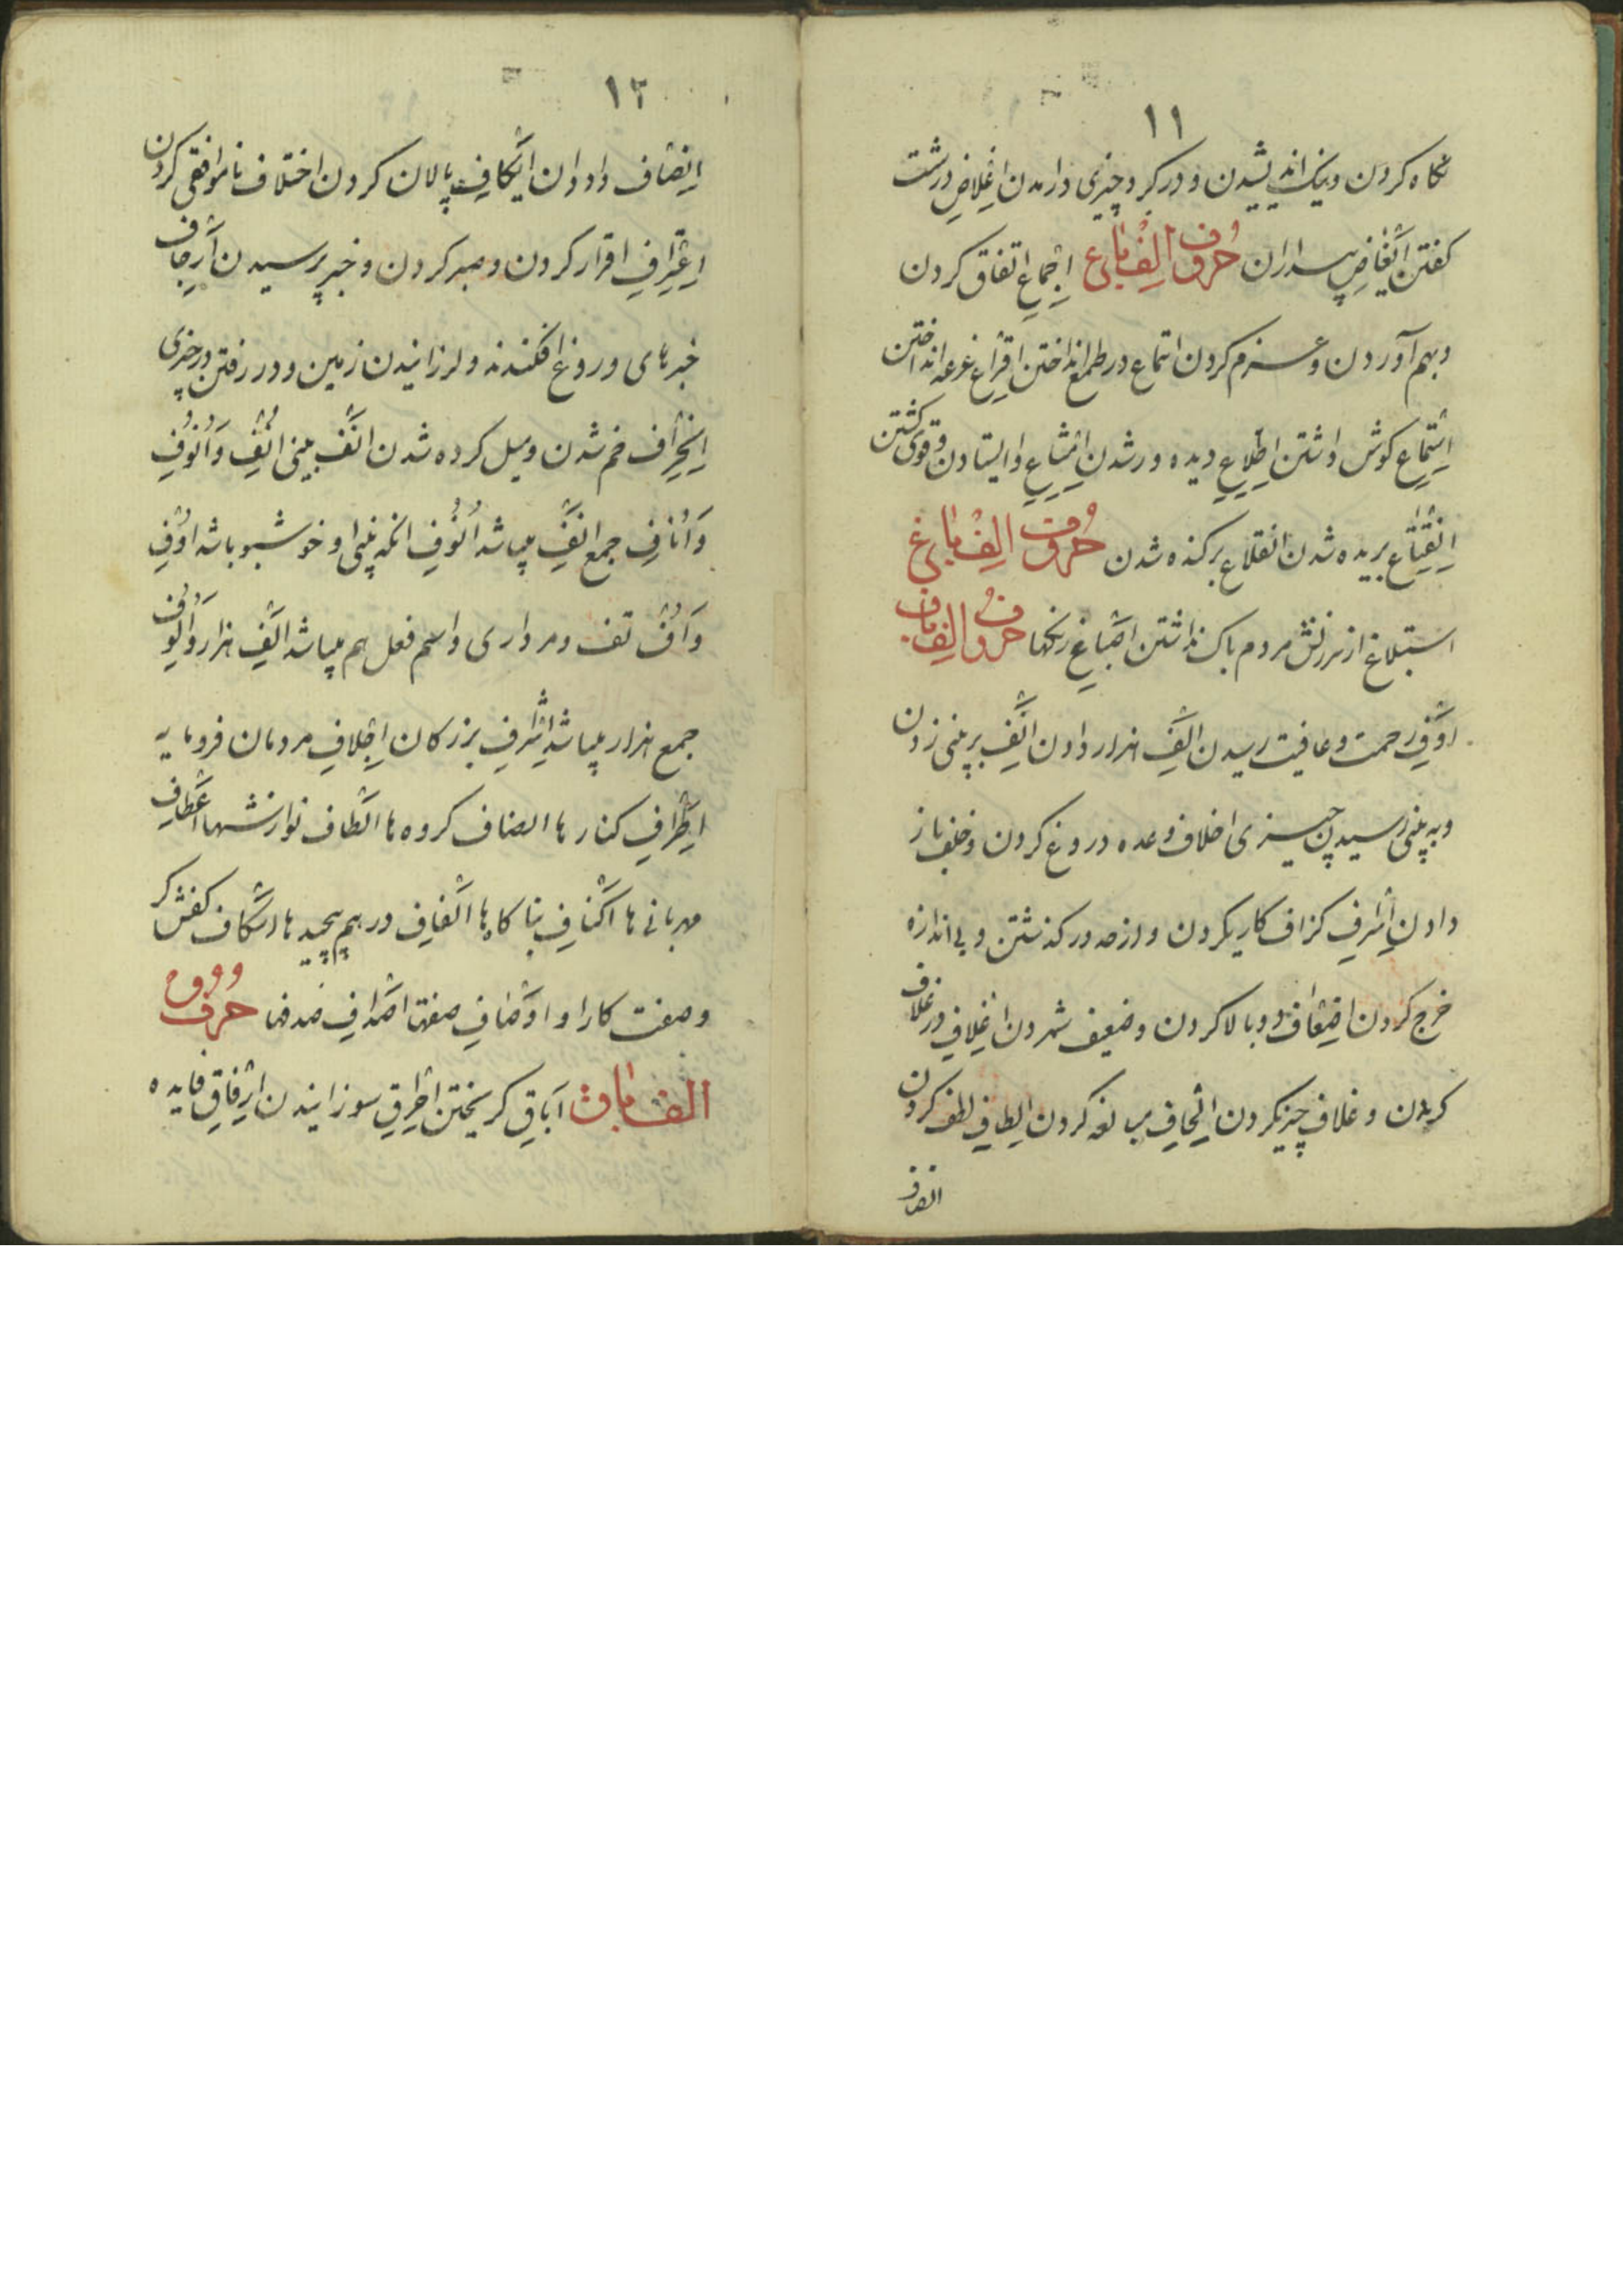 ١١
نگاه کردن و نیک اندیشیدن و در کرد چیزی درامدن اغلاض درشت
کفتن انغاض پسداران حروف الف باع اجماع اتفاق کردن
و بهم آوردن و عزم کردن اتماع در طمع انداختن اقراع غرعه انداختن
استماع کوش داشتن اطلاع دیده ور شدن امتناع وا ایستادن و قوی کشتن
انقتاع بریده شدن انقلاع برکنده شدن حروف الف باغ
استبلاغ از سرزنش مردم باک نداشتن اصباغ رنکها حروف الف باف
اوف رحمت و عافیت رسیدن الف هزار دادن انف بر پنی زدن
و به پنی رسیدن چیزی اخلاف وعده دروغ کردن و خلف باز
دادن اسرف کزاف کاریکردن و از حد در کذشتن و بی اندازه
خرج کردن اضعاف دو بالا کردن و ضعیف شمردن اغلاف در غلاف
کردن و غلاف چیزیکردن الحاف مبالغه کردن الطاف لطف کردن
انصاف
١٢
انصاف دادان ایکاف پالان کردن اختلاف ناموافقی کردن
اعتراف اقرار کردن و صبر کردن و خبر پرسیدن آرجاف
خبرهای دروغ افکندنه و لرزانیدن زمین و در رفتن در چیزی
انحراف خم شدن و میل کرده شدن انف بینی انف و انوف
و اناف جمع انف میباشد انوف انکه پنی او خوشبو باشد اوف
و اف تف و مرداری و اسم فعل هم میباشد الف هزار و الوف
جمع هزار میباشد اشرف بزرکان اجلاف مردمان فرومایه
اطراف کنارها اصناف کروه ها الطاف نوازشها اعطاف
مهربانی ها اکناف پناکاه ها الفاف درهم پیچیدها اسکاف کفش کر
و صفت کارا و اوصاف صفتها اصداف صدفها حروف
الف باق اباق کریختن احراق سوزانیدن ارفاق فایده